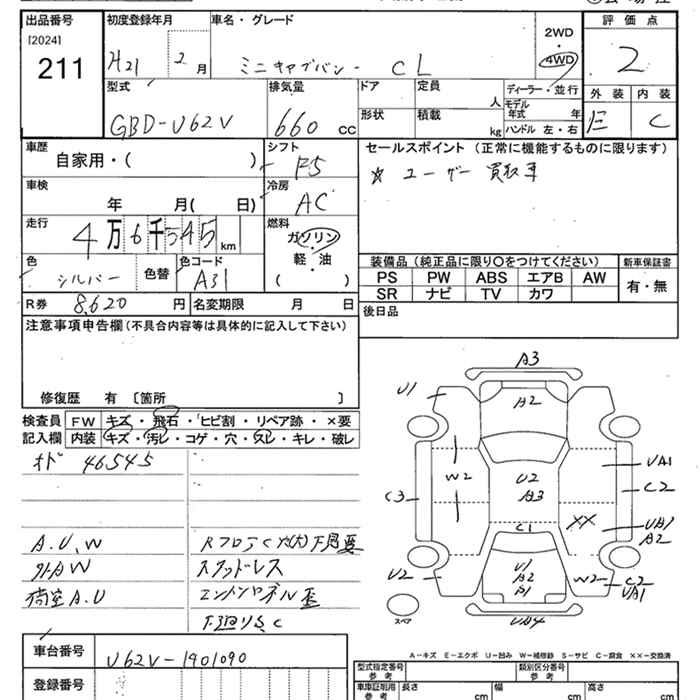 出品番号
[2024]
211
初度登録年月
H21 2月
車名・グレード
ミニキャブバン CL
2WD
・
4WD
評価点
2
型式
GBD-U62V
排気量
660 cc
ドア
形状
定員
人
積載
kg
ディーラー・並行
モデル
年式 年
ハンドル 左・右
外装 内装
E C
車歴
自家用・( )
シフト
F5
セールスポイント(正常に機能するものに限ります)
☆ ユーザー買取車
車検
年 月( 日)
冷房
AC
走行
4万6千545km
燃料
ガソリン
・
軽・油
( )
色
シルバー
色替
色コード
A31
装備品(純正品に限り〇をつけてください)
新車保証書
PS PW ABS エアB AW
SR ナビ TV カワ
有・無
R券 8,620円
名変期限 月 日
後日品
注意事項申告欄(不具合内容等は具体的に記入して下さい)
修復歴 有 〔箇所 〕
検査員
記入欄
FW キズ・飛石・ヒビ割・リペア跡・×要
内装 キズ・汚レ・コゲ・穴・スレ・キレ・破レ
オド 46545
A.U.W
外AW
荷室A.U
RフロアC穴(大)下廻要
スタッドレス
エンドパネル歪
下廻りS.C
A3
U1
A2
W2
U2
A3
UA1
C3
C2
C1
XX
UA1
A2
U2
U1
A2
P1
W2
C2
UA1
スペア
UA4
A−キズ E−エクボ U−凹み W−補修跡 S−サビ C−腐食 ××−交換済
車台番号
U62V-1901090
登録番号
型式指定番号
参考
類別区分番号
参考
車庫証明用
参考
長さ cm
幅 cm
高さ cm